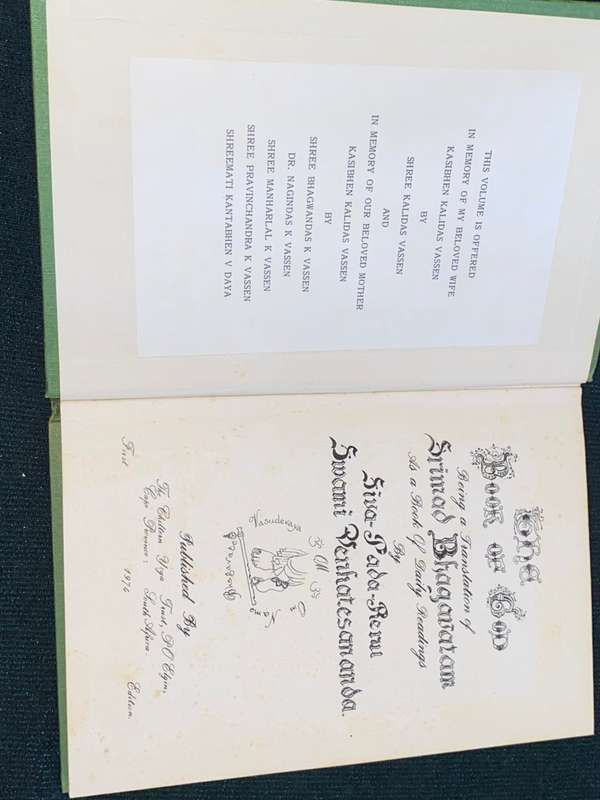 THIS VOLUME IS OFFERED
IN MEMORY OF MY BELOVED WIFE
KASIBHEN KALIDAS VASSEN
BY
SHREE KALIDAS VASSEN
AND
IN MEMORY OF OUR BELOVED MOTHER
KASIBHEN KALIDAS VASSEN
BY
SHREE BHAGWANDAS K VASSEN
DR. NAGINDAS K VASSEN
SHREE MANHARLAL K VASSEN
SHREE PRAVINCHANDRA K VASSEN
SHREEMATI KANTABHEN V DAYA
The
Book of God
Being a Translation of
Srimad Bhagavatam
As a Book Of Daily Readings
By
Siva-Pada-Renu
Swami Venkatesananda.
Published By
The Chiltern Yoga Trust, P.O. Elgin,
Cape Province: South Africa.
First 1976 Edition.